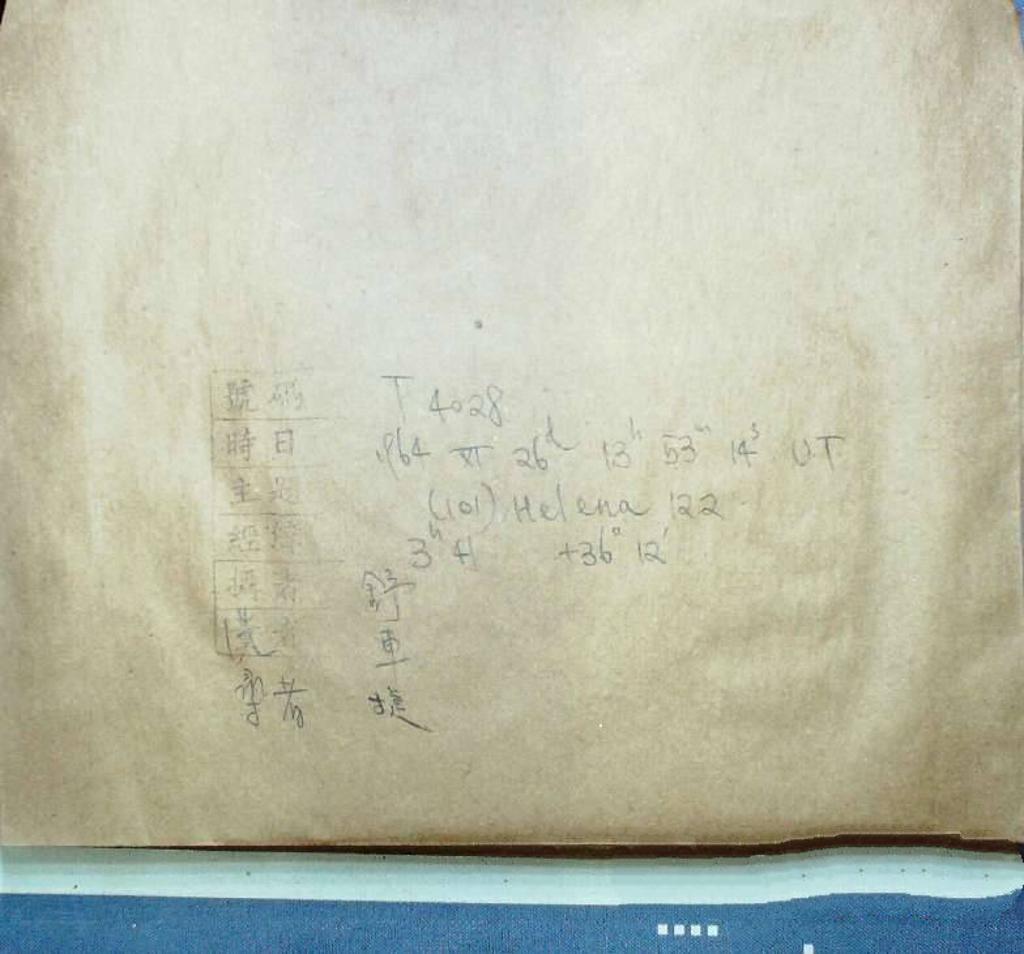 號碼 T 4028
時日 1964 XI 26ᵈ 13ʰ 53ᵐ 14ˢ UT
主題 (101) Helena 122
經緯 3ʰ 41 +36° 12′
者 舒
者 車
者 捷